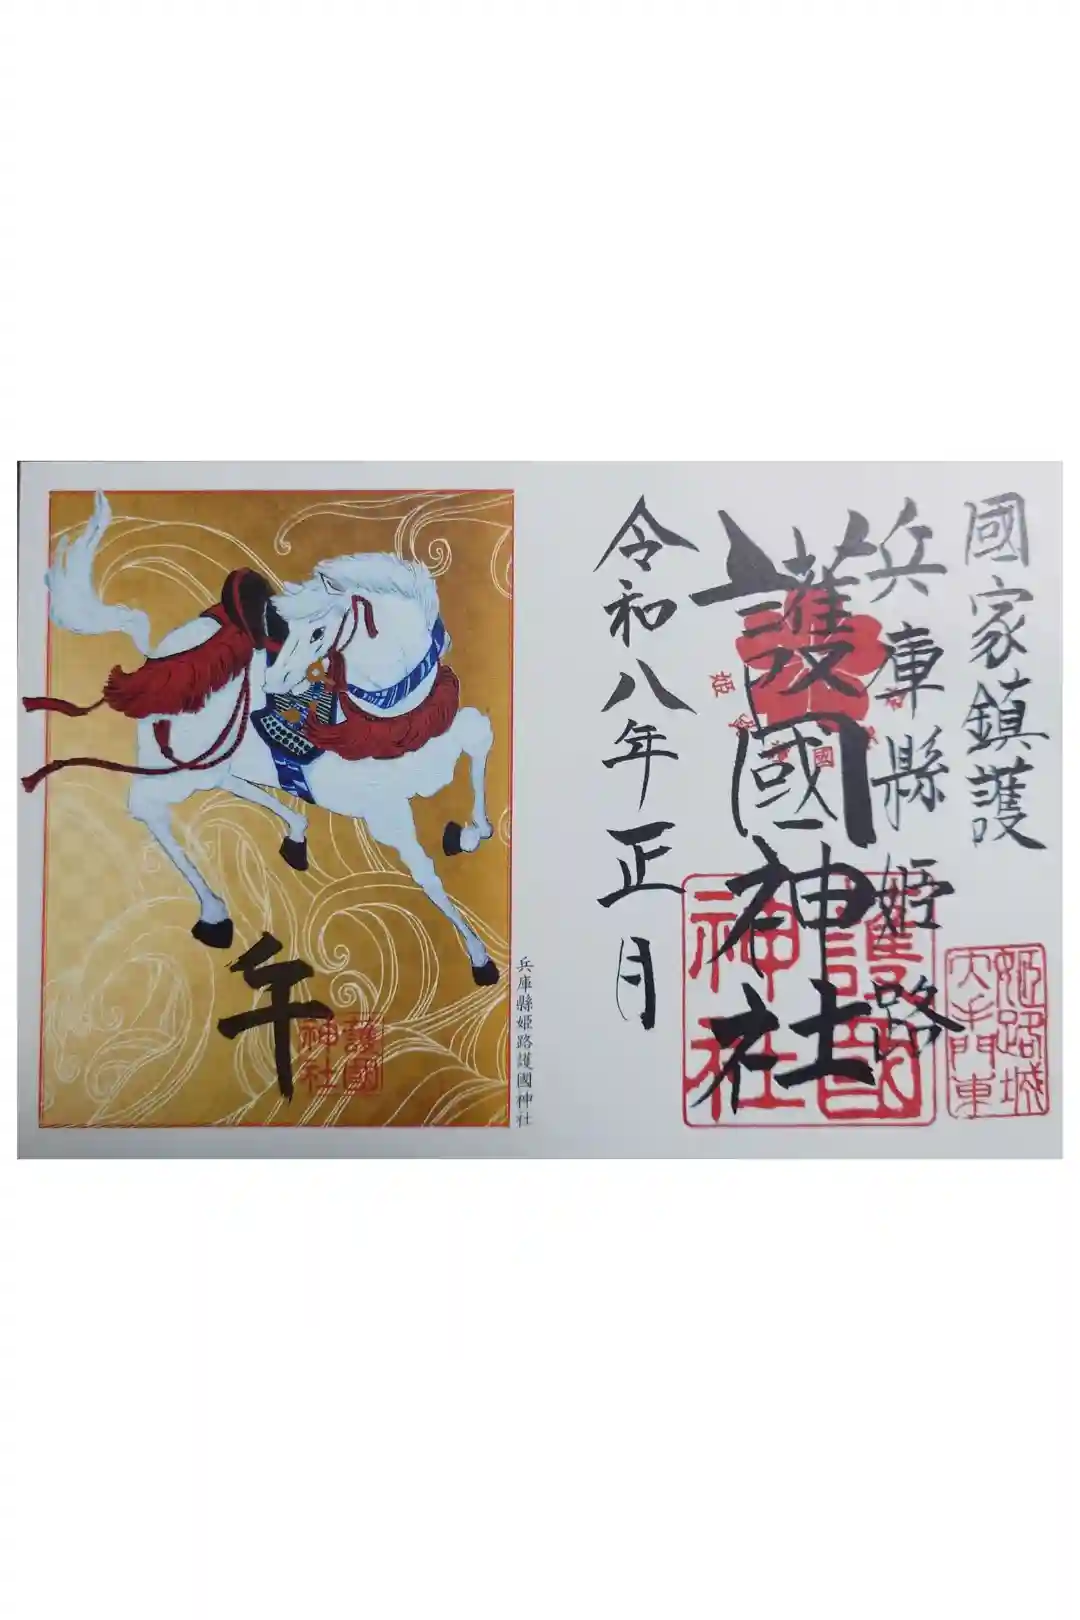 國家鎮護
兵庫縣姫路
護國神社
令和八年正月
姫路城
大手門東
護國
神社
姫
國
兵庫縣姫路護國神社
午
護國
神社